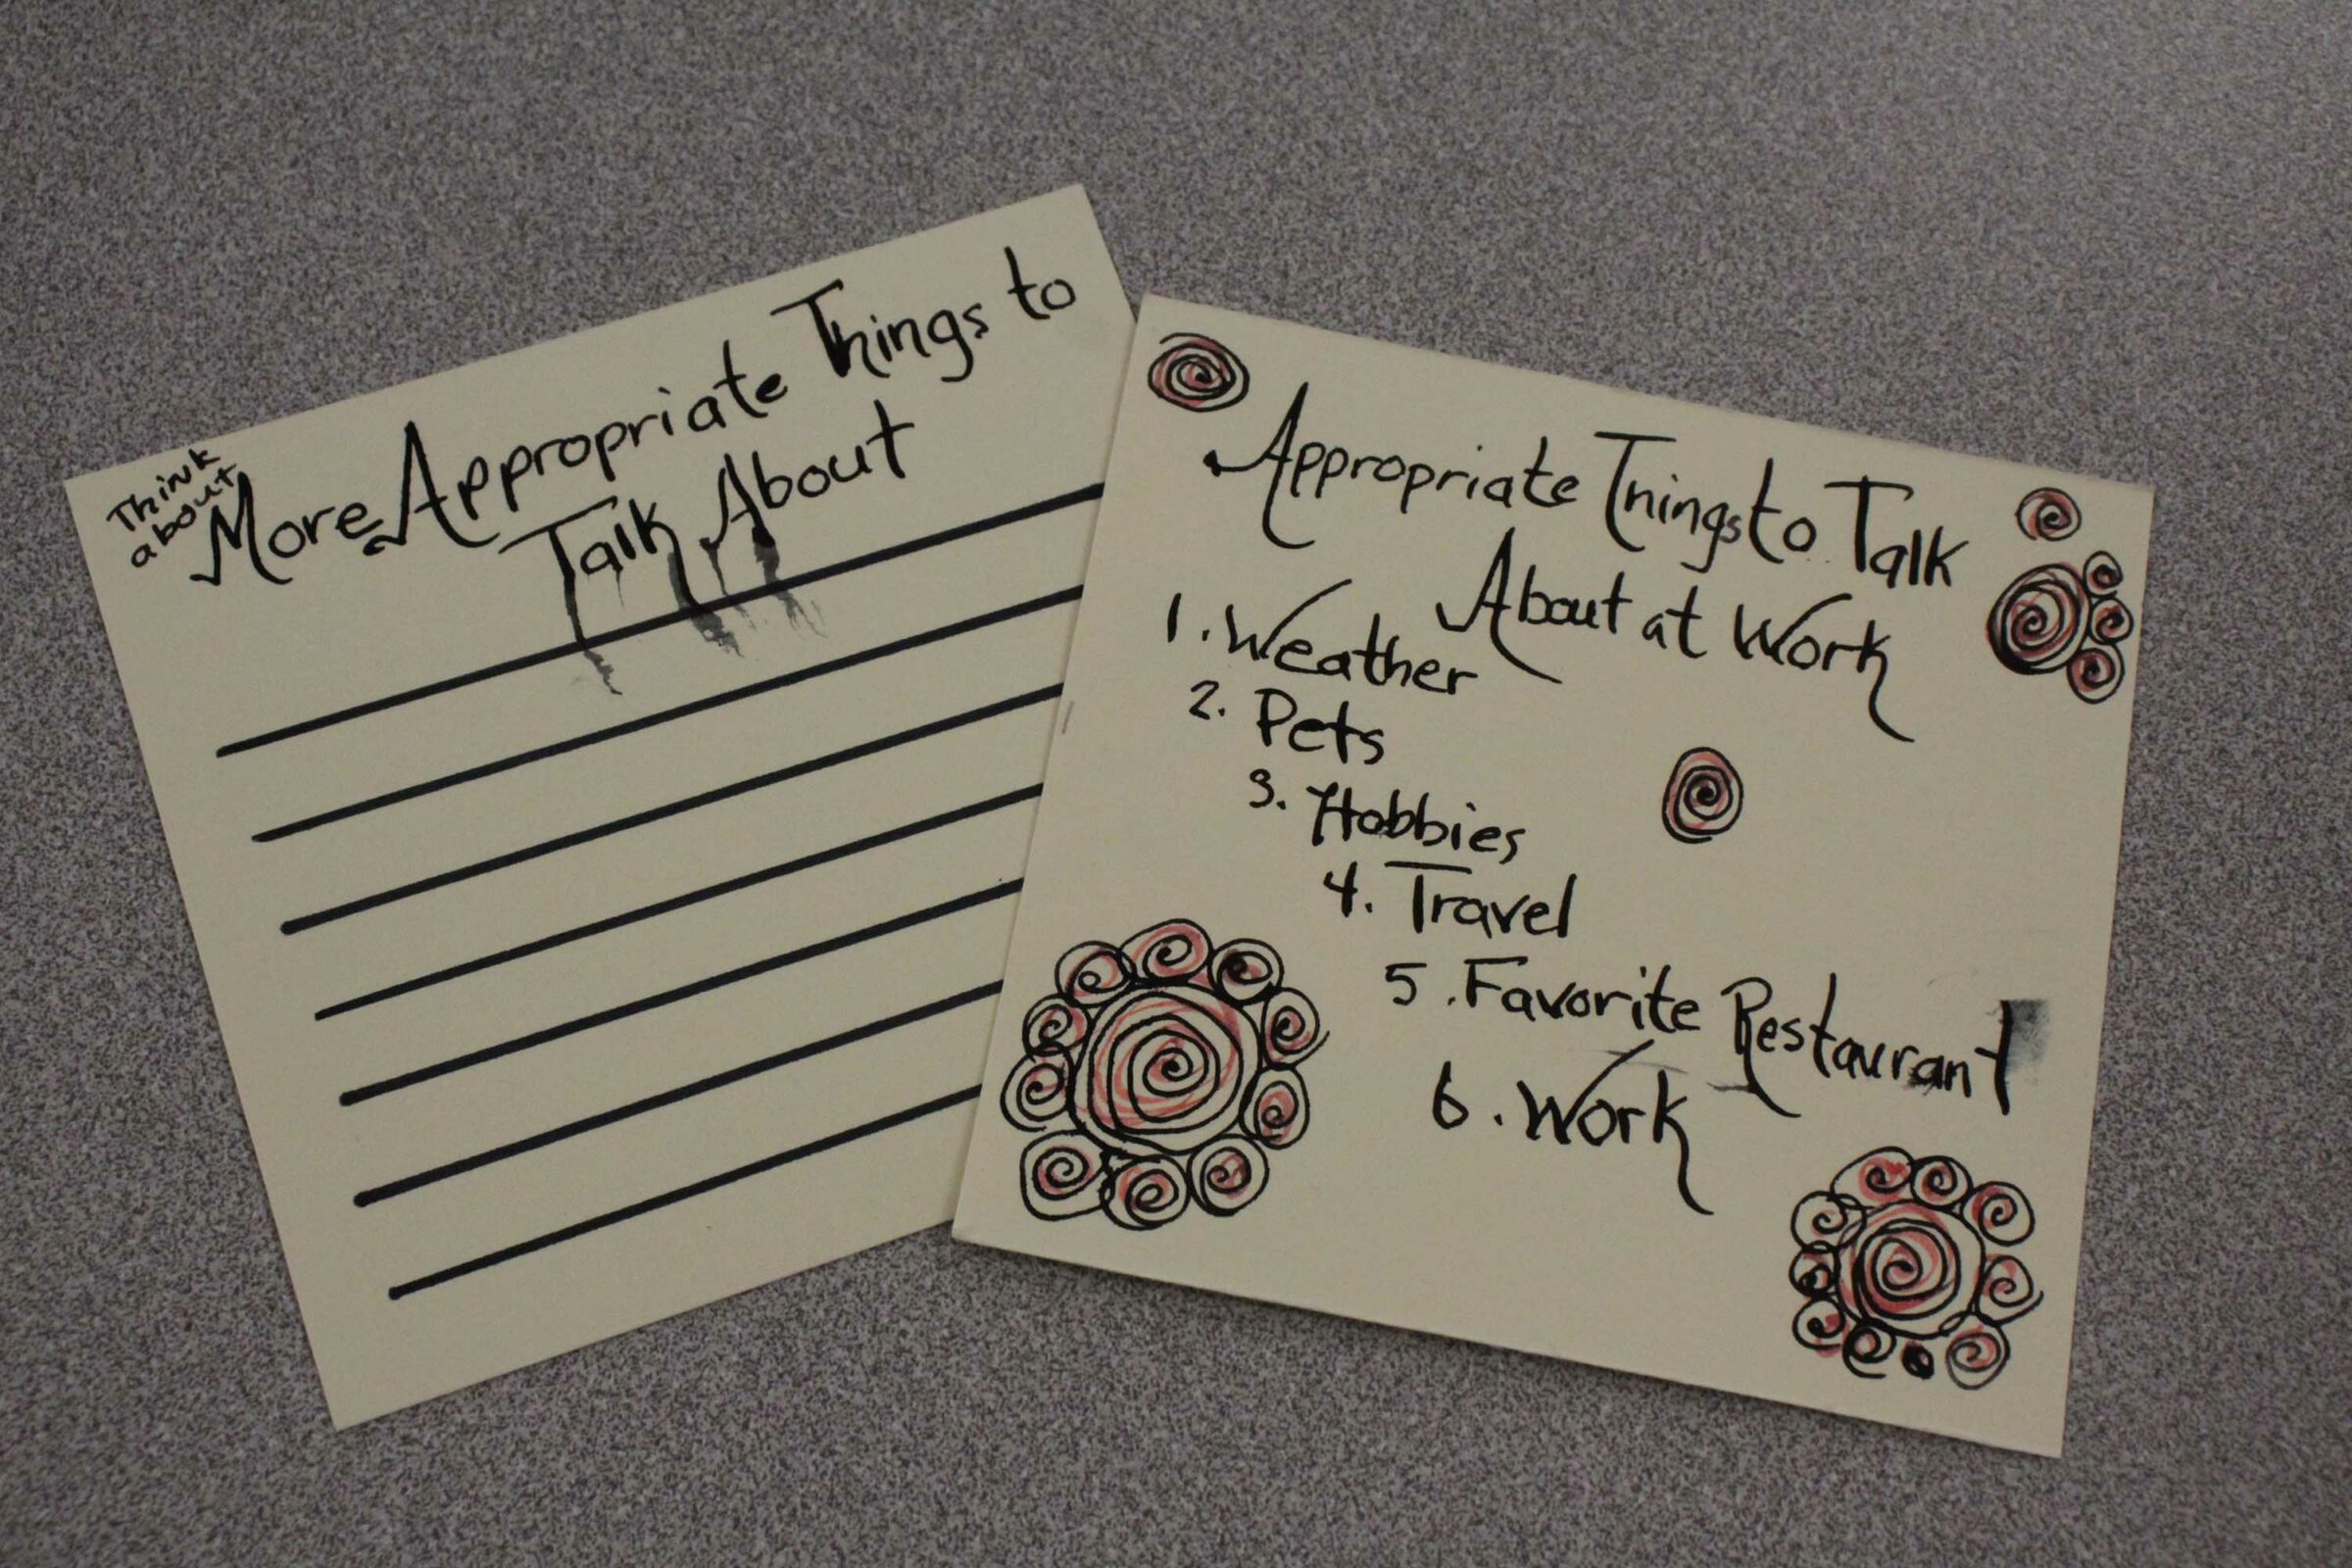 Think
about
More Appropriate Things to
Talk About
Appropriate Things to Talk
About at Work
1. Weather
2. Pets
3. Hobbies
4. Travel
5. Favorite Restaurant
6. Work